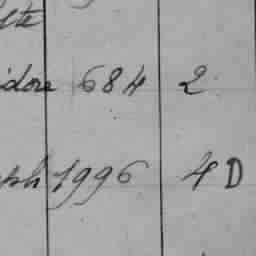 idore 684 2
eph 1996 4 D